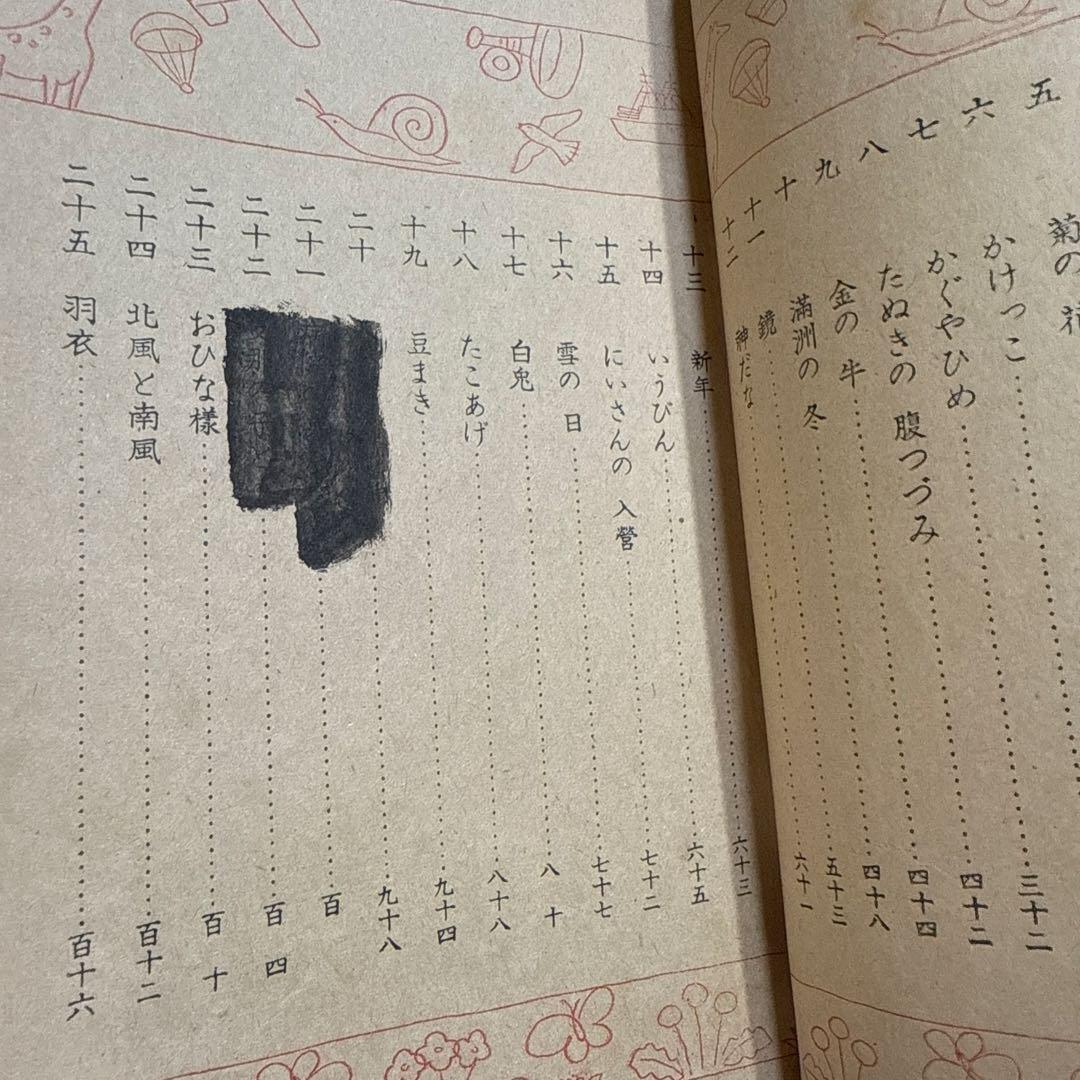 五 菊の
六 かけっこ…
七 かぐやひめ…三十二
八 たぬきの 腹つづみ…四十二
九 金の 牛…四十四
十 滿洲の 冬…四十八
十一 鏡…五十三
十二 神だな…六十一
十三 新年…六十三
十四 いうびん…六十五
十五 にいさんの 入營…七十二
十六 雪の 日…七十七
十七 白兎…八十
十八 たこあげ…八十八
十九 豆まき…九十四
二十 …九十八
二十一 …百
二十二 …百四
二十三 おひな樣…百十
二十四 北風と南風…百十二
二十五 羽衣…百十六